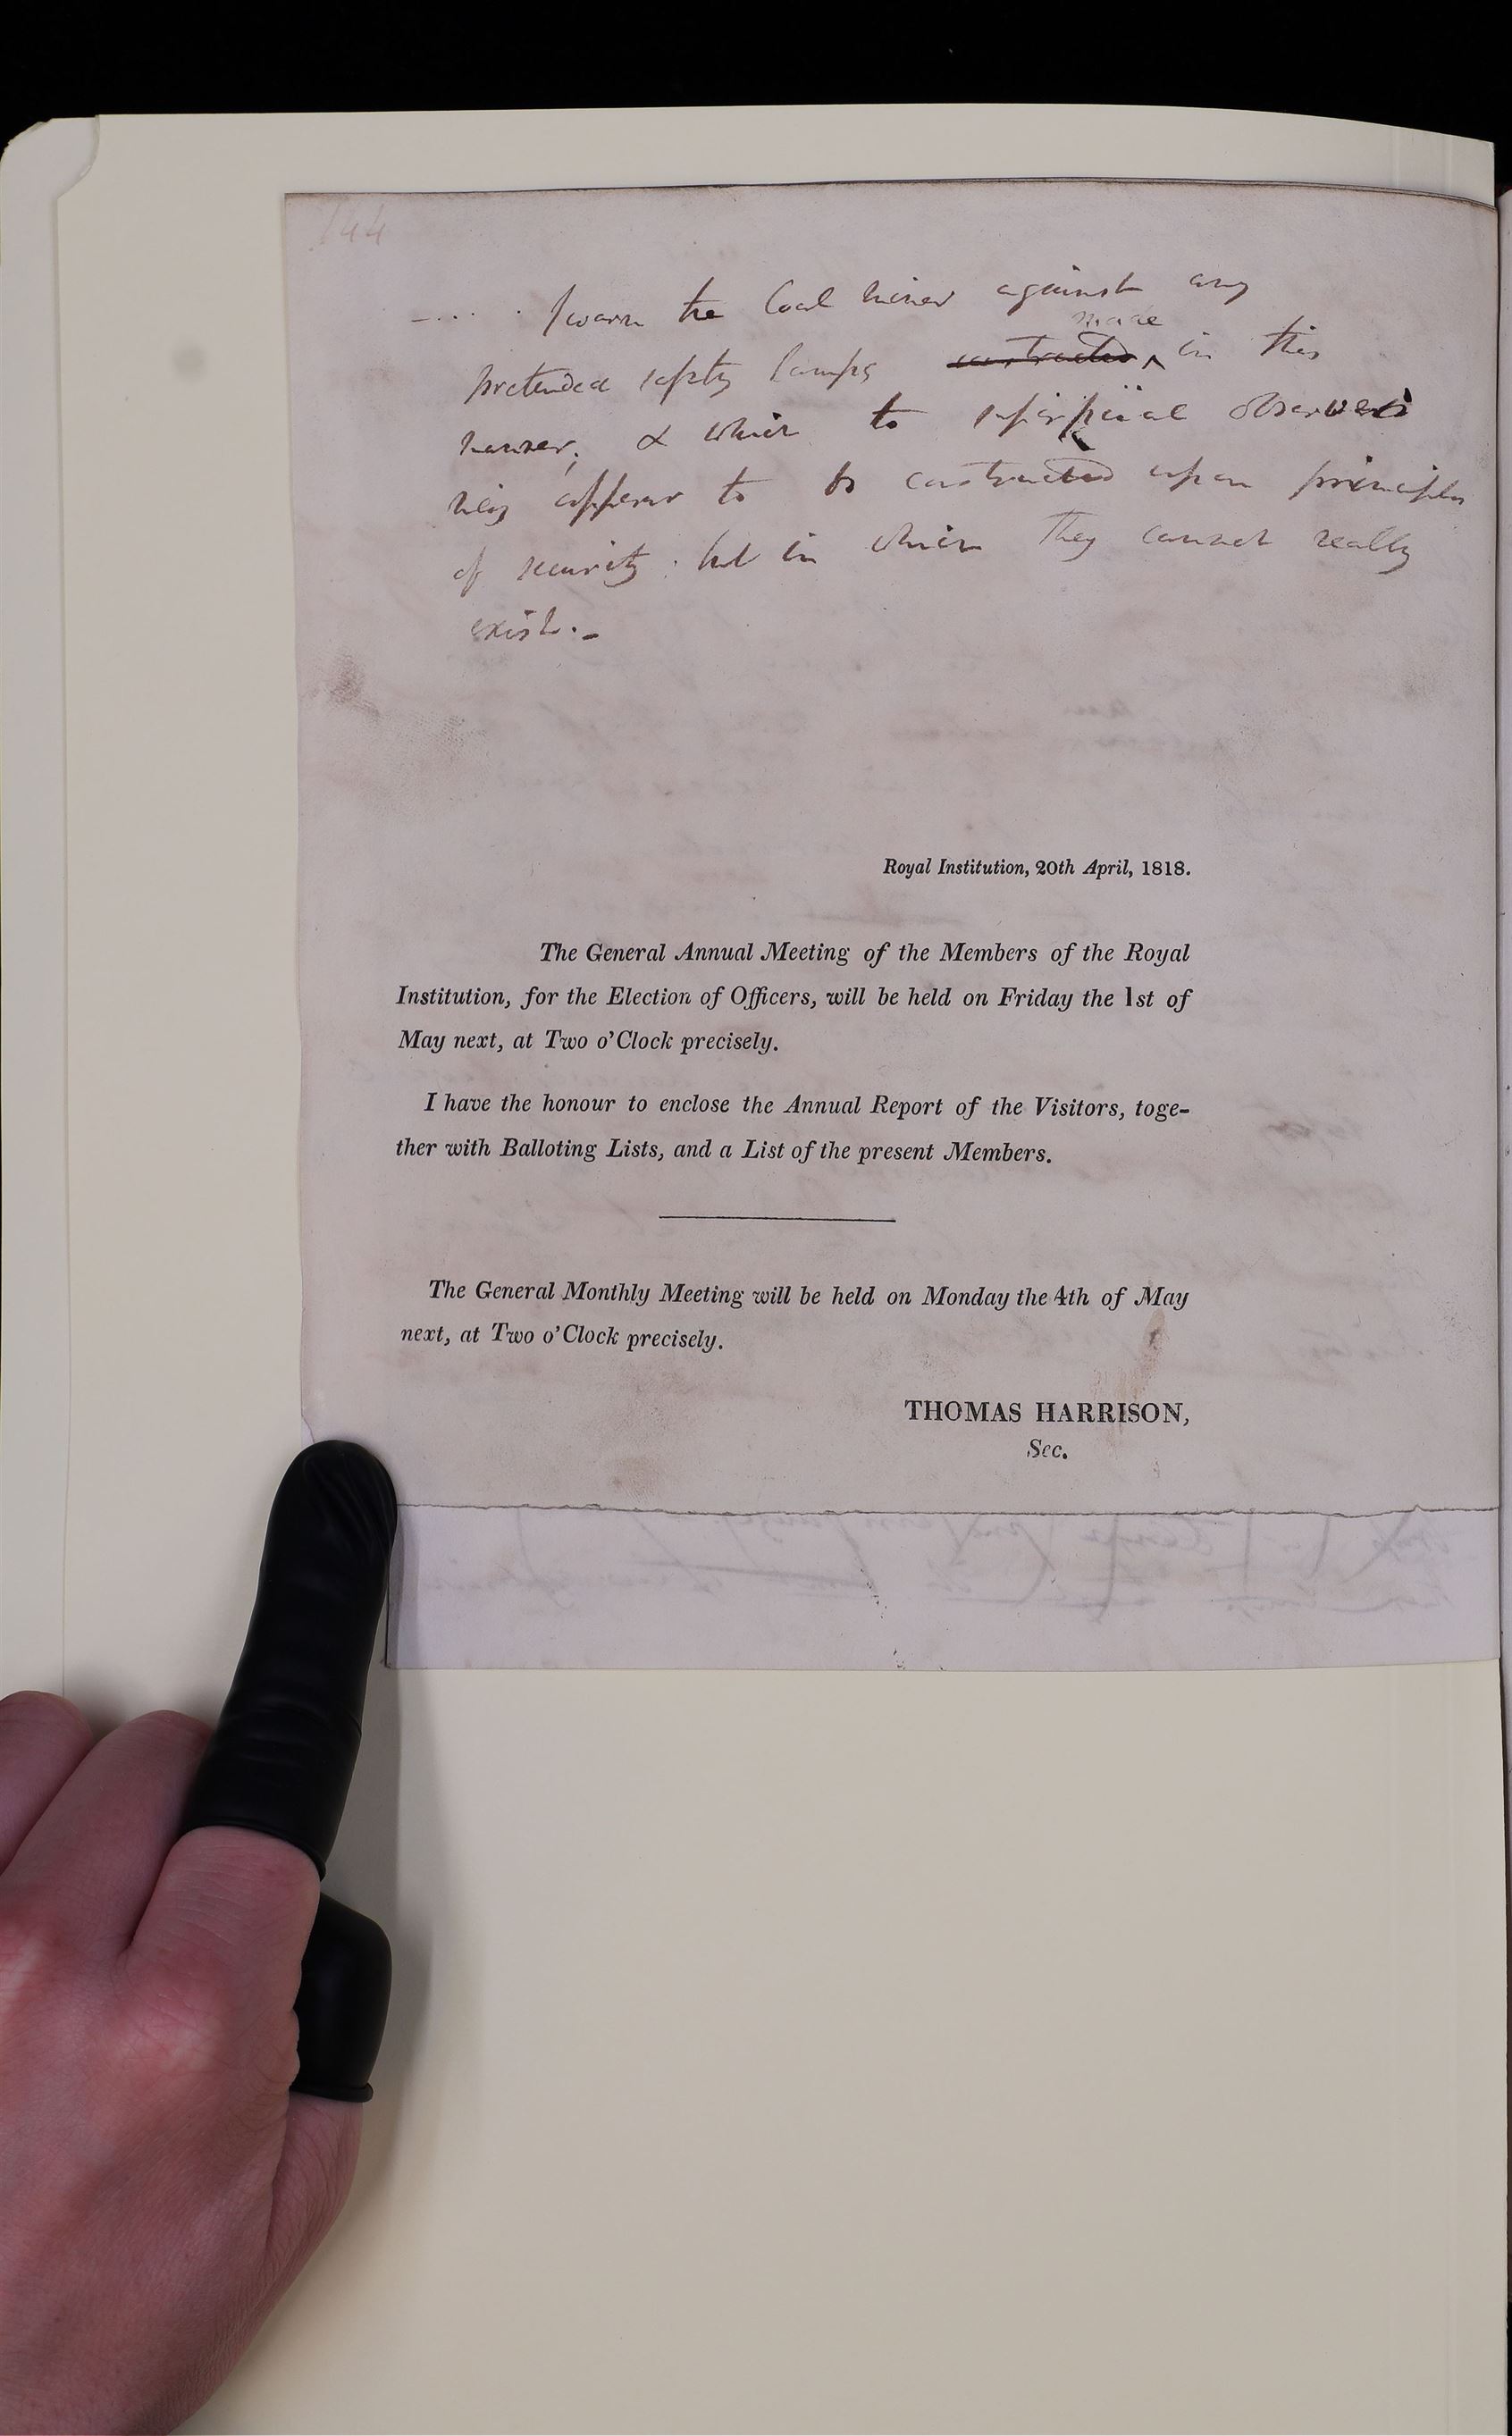 144
I warn the Coal miner against any
made
pretended safety lamps constructed ^ in this
manner; & which to superficial observers
may appear to be constructed upon principles
of security; but in which they cannot really
exist. -
Royal Institution, 20th April, 1818.
The General Annual Meeting of the Members of the Royal
Institution, for the Election of Officers, will be held on Friday the 1st of
May next, at Two o'Clock precisely.
I have the honour to enclose the Annual Report of the Visitors, toge-
ther with Balloting Lists, and a List of the present Members.
The General Monthly Meeting will be held on Monday the 4th of May
next, at Two o'Clock precisely.
THOMAS HARRISON,
Sec.